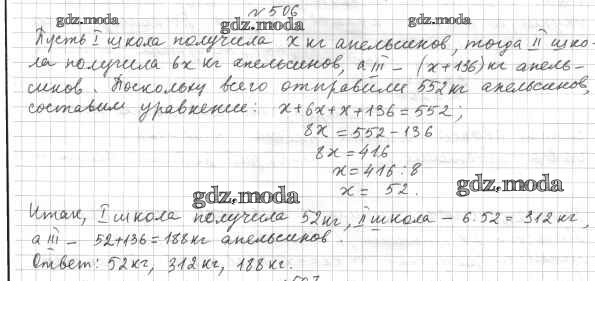 №506
gdz.moda gdz.moda gdz.moda
Пусть I школа получила x кг апельсинов, тогда II шко-
ла получила 6x кг апельсинов, а III – (x+136) кг апель-
синов. Поскольку всего отправили 552 кг апельсинов,
составим уравнение: x+6x+x+136=552;
8x=552-136
8x=416
x=416:8
x= 52.
gdz.moda gdz.moda
Итак, I школа получила 52кг, II школа – 6·52= 312 кг,
а III – 52+136=188кг апельсинов.
Ответ: 52кг, 312 кг, 188кг.